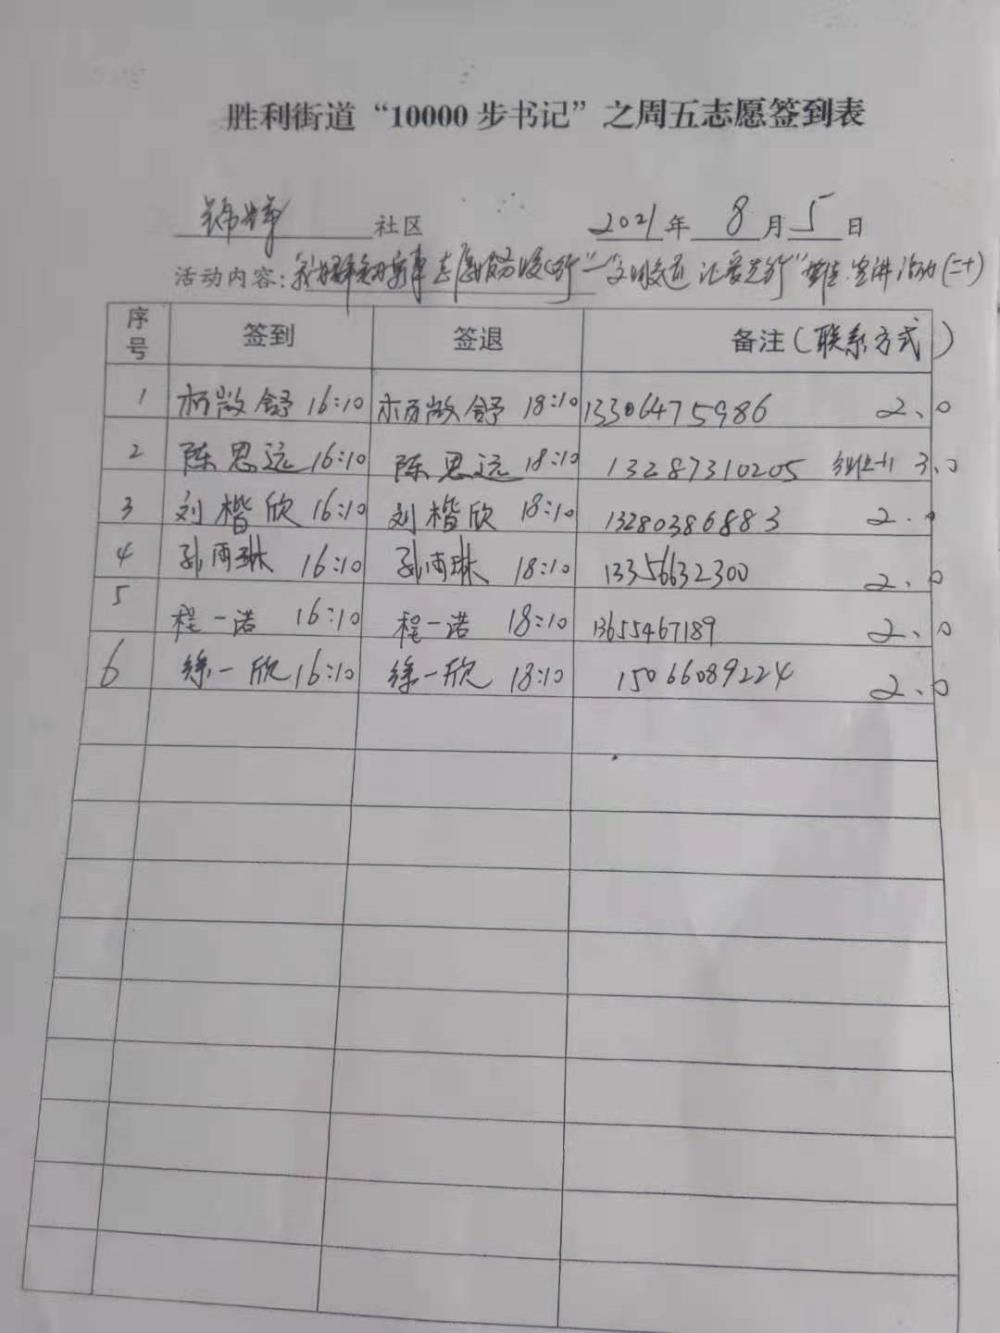 胜利街道“10000步书记”之周五志愿签到表
锦华 社区 2021年 8月 5日
活动内容：我为群众办实事志愿服务暖心行”—“文明交通 让爱先行” 宣讲活动(二十)
序号 签到 签退 备注(联系方式)
1 柏敬舒 16:10 柏敬舒 18:10 13306475986 2.0
2 陈思远 16:10 陈思远 18:10 13287310205 3.0
3 刘楷欣 16:10 刘楷欣 18:10 13280386883 2.0
4 孙雨琳 16:10 孙雨琳 18:10 13356632300 2.0
5 程一诺 16:10 程一诺 18:10 13655467189 2.0
6 徐一欣 16:10 徐一欣 18:10 15066089224 2.0